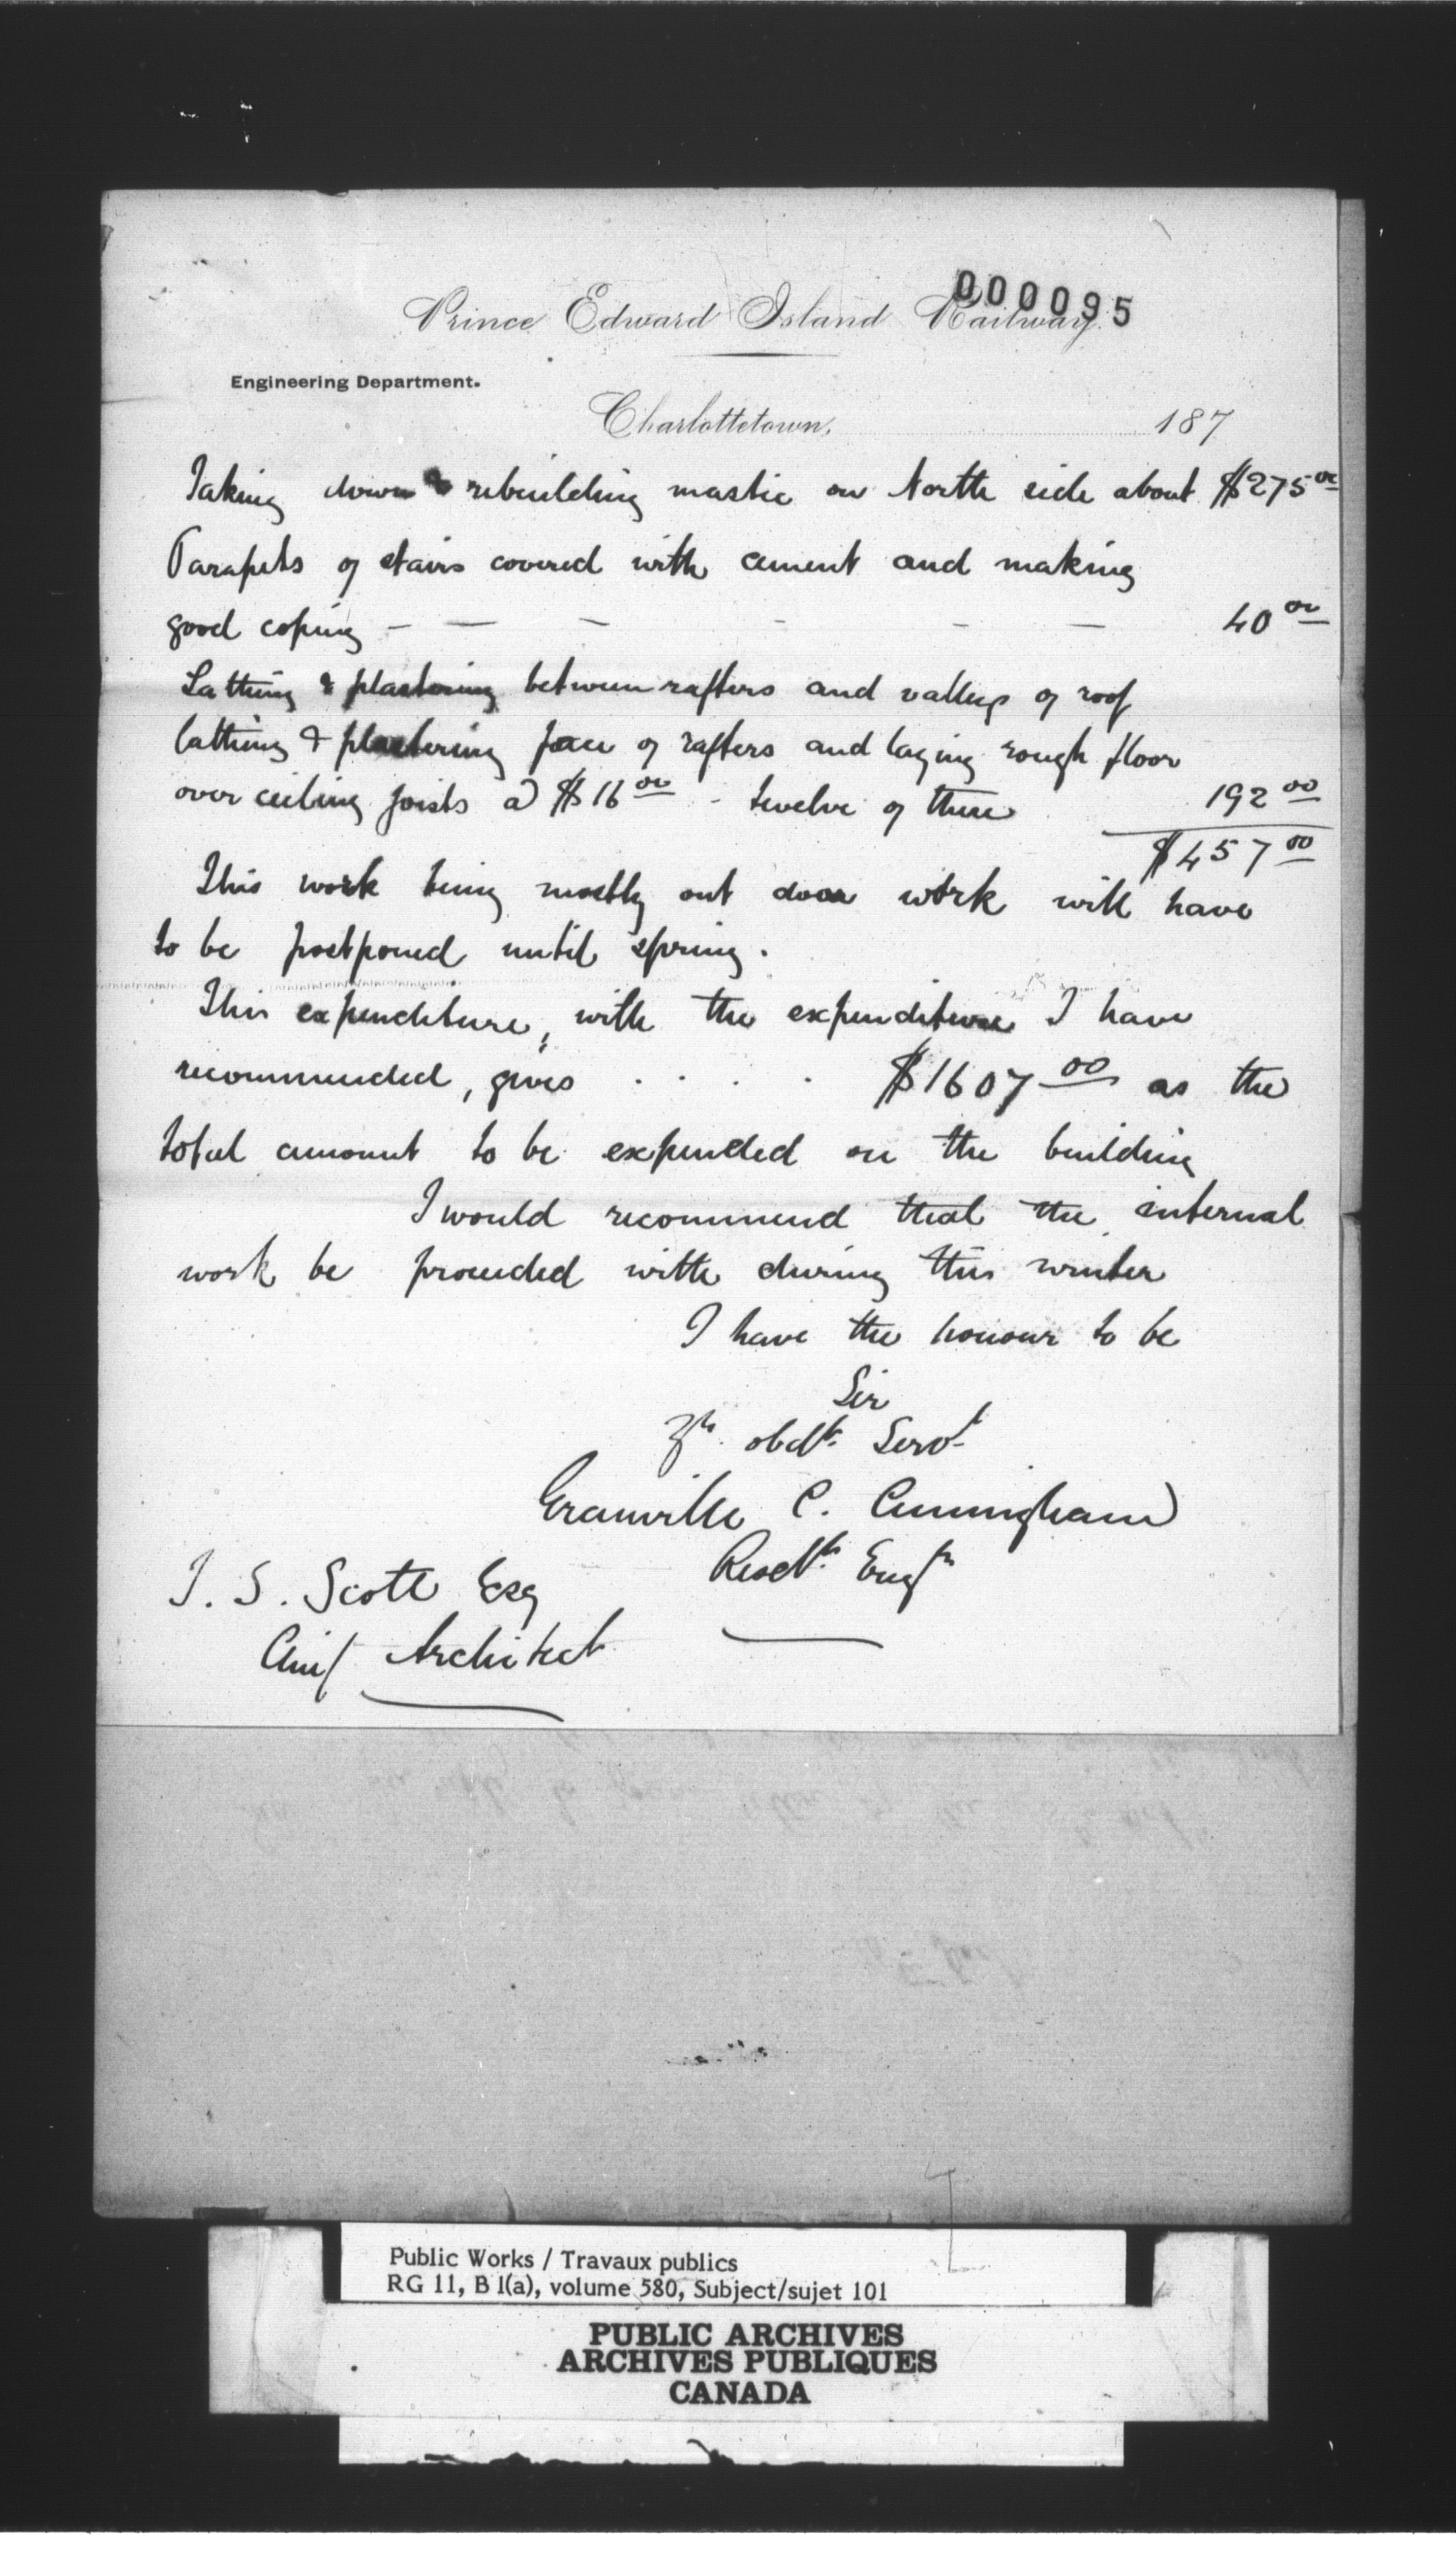 000095
Prince Edward Island Railway.
Engineering Department.
Charlottetown, 187
Taking down & rebuilding mastic on North side about $275 00
Parapets of stairs covered with cement and making
good coping - - - - - - 40 00
Lathing & plastering between rafters and valleys of roof
lathing & plastering face of rafters and laying rough floor
over ceiling joists @ $16 00 - twelve of these 192 00
$457 00
This work being mostly out door work will have
to be postponed until spring.
This expenditure, with the expenditure I have
recommended, gives . . . . $1607 00 as the
total amount to be expended on the building
I would recommend that the internal
work be proceeded with during this winter
I have the honour to be
Sir
Yr. obdt. Servt
Granville C. Cunningham
Resdt. Engr
T. S. Scott Esq
Chief Architect
Public Works / Travaux publics
RG 11, B 1(a), volume 580, Subject/sujet 101
PUBLIC ARCHIVES
ARCHIVES PUBLIQUES
CANADA